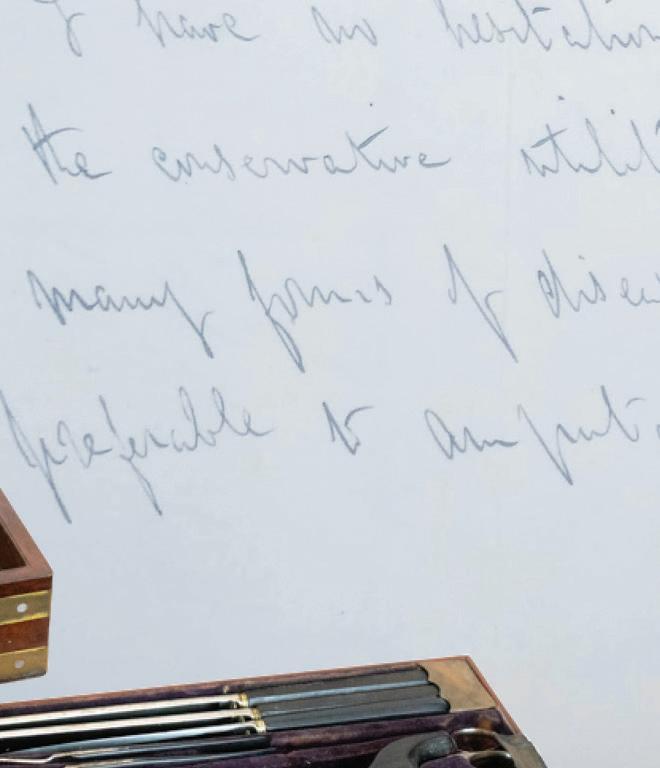 I have no hesitation
the conservative utilit
many forms of disea
preferable to amputa